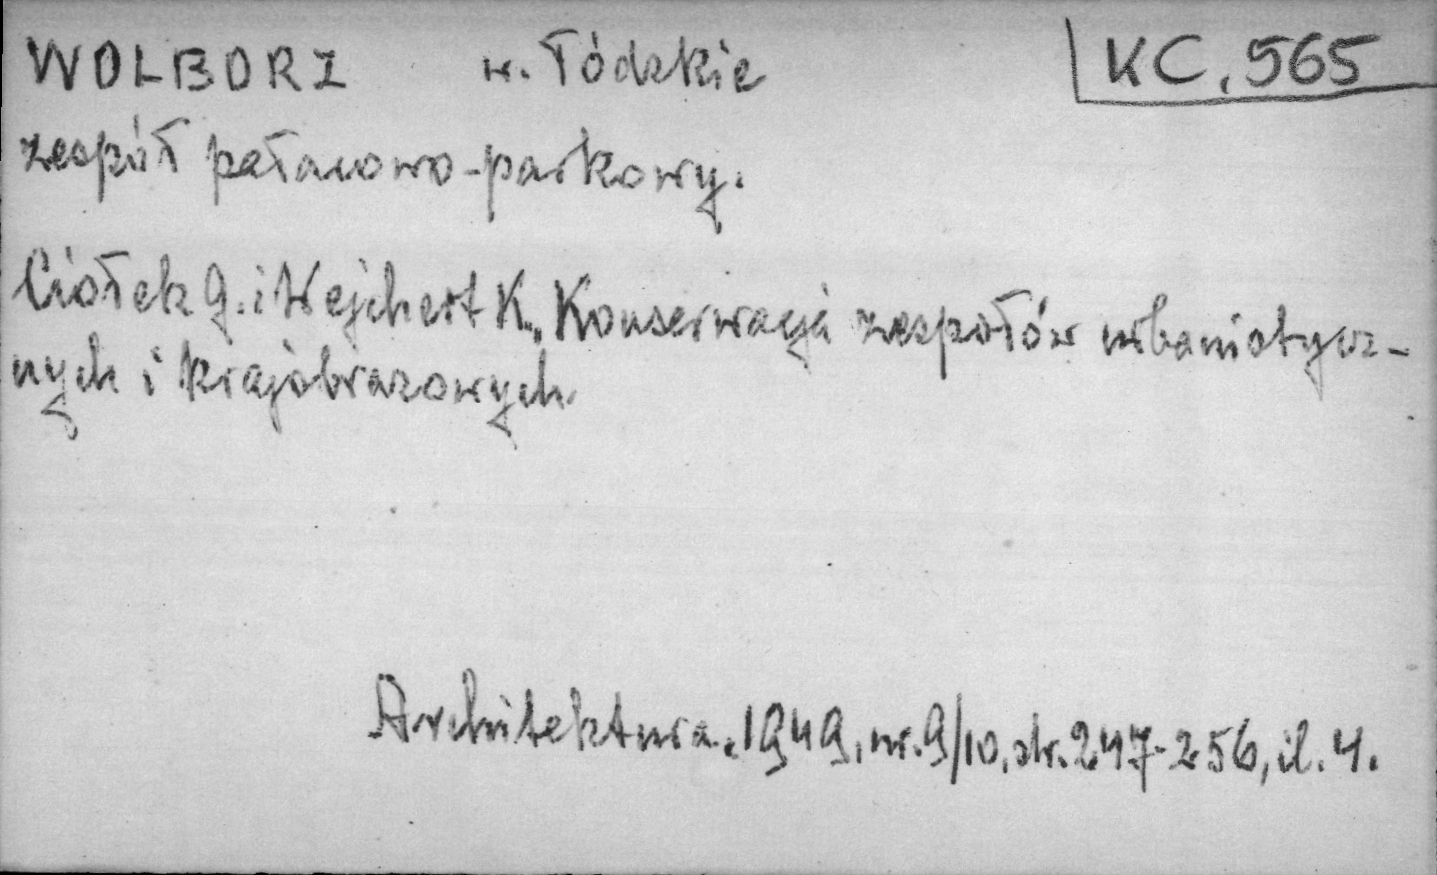 WOLBORZ w. Łódzkie KC, 565
zespół pałacowo-parkowy.
Ciołek G. i Wejchert K., Konserwacja zespołów urbanistycz-
nych i krajobrazowych.
Architektura. 1949, nr. 9/10, str. 247-256, il. 4.